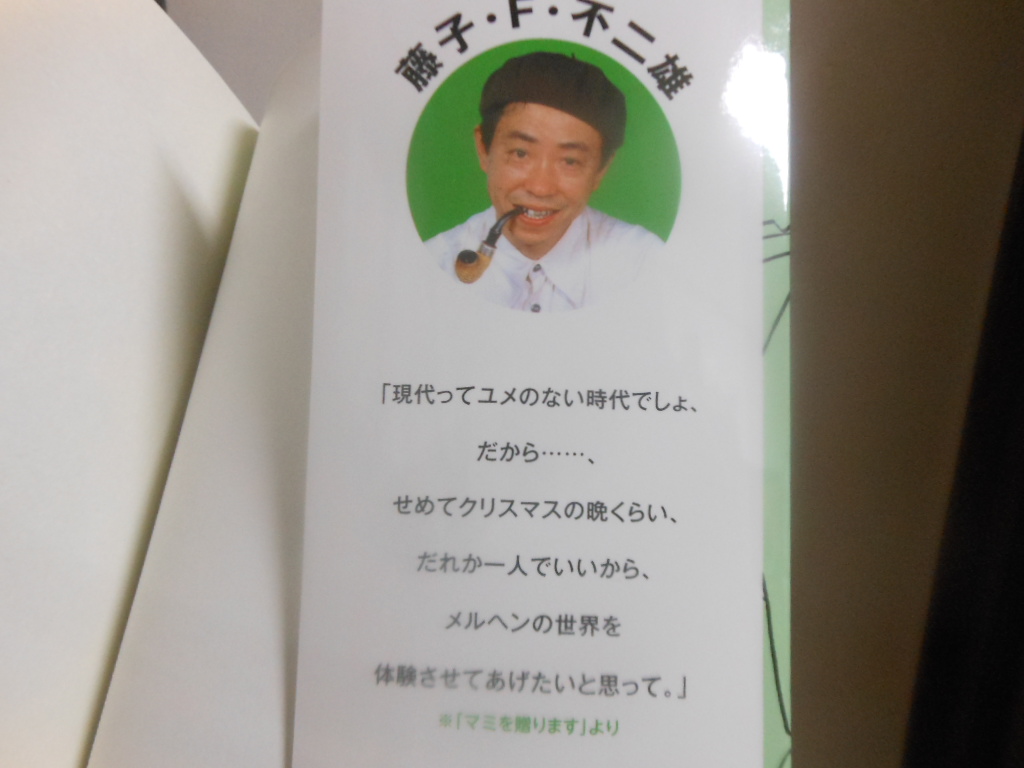 藤子・F・不二雄
「現代ってユメのない時代でしょ、
だから……、
せめてクリスマスの晩くらい、
だれか一人でいいから、
メルヘンの世界を
体験させてあげたいと思って。」
※「マミを贈ります」より